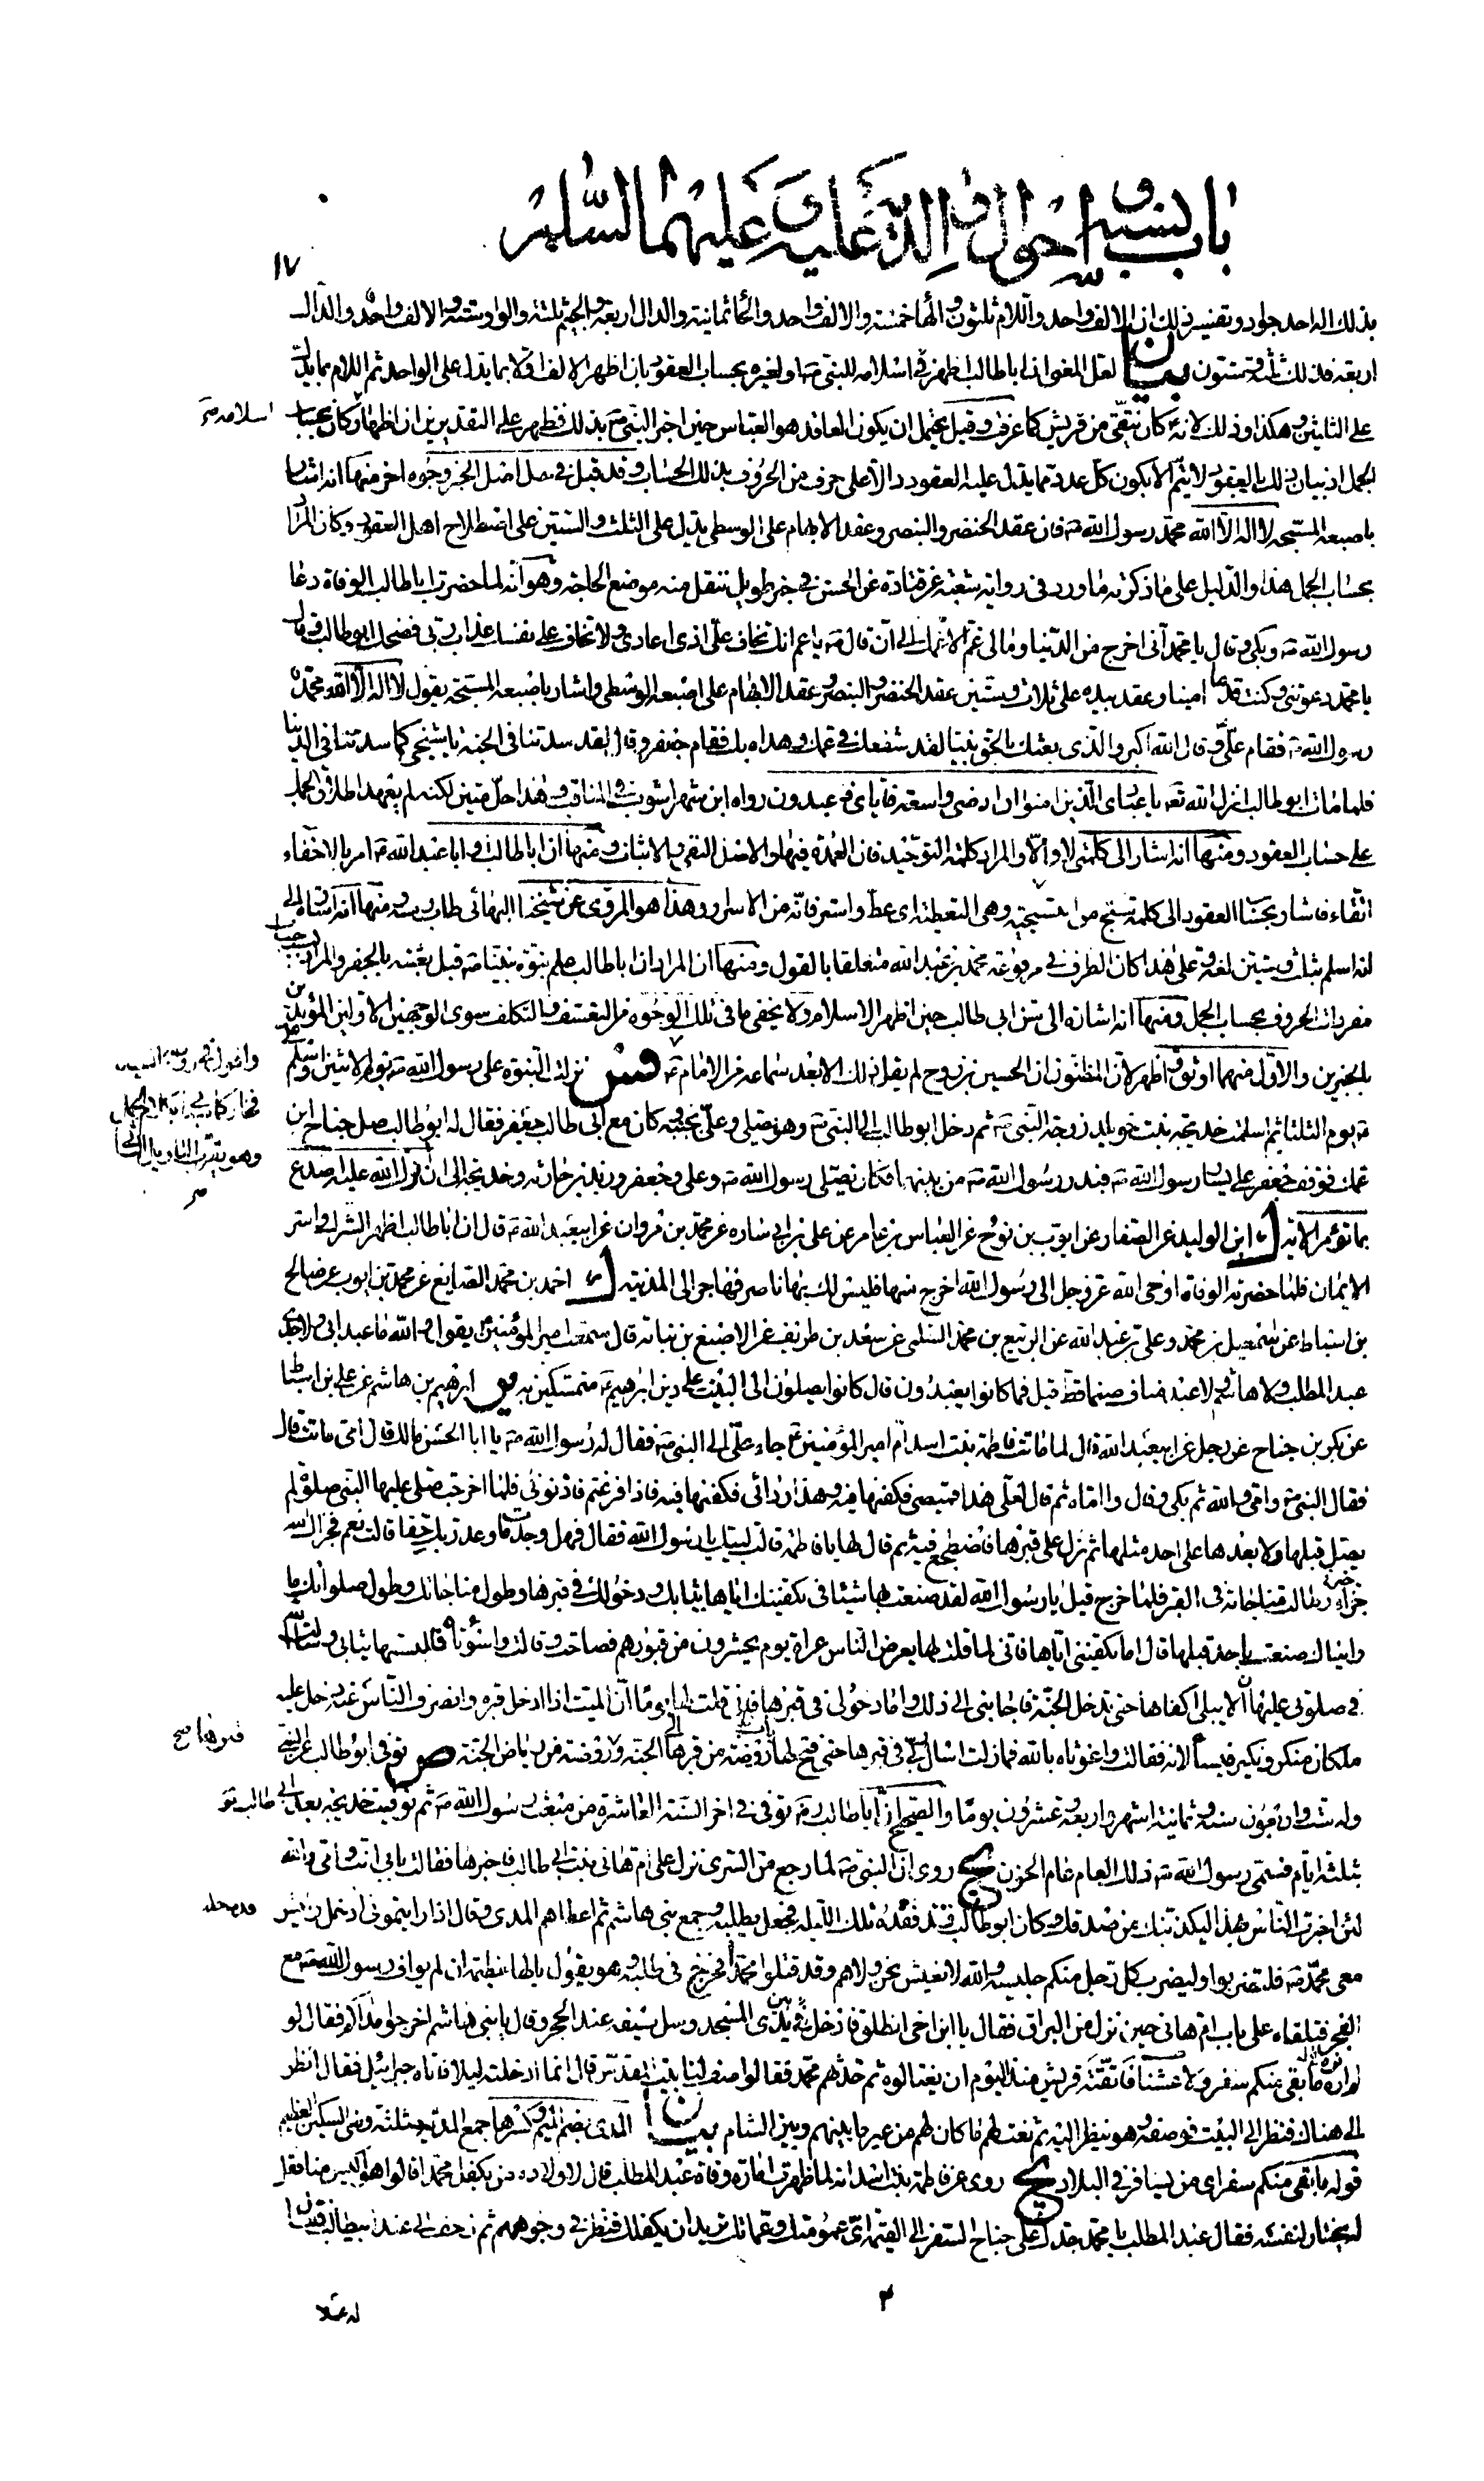 باب نسبه و احوال والديه عليه و عليهما السلام
١٧
بذلك اله احد جواد وتفسير ذلك ان الالف واحد واللام ثلثون والهاء خمسة والالف واحد والحاء ثمانية والدال اربعة والجيم ثلثة والواو ستة والالف واحد والدال
اربعة فذلك ثلثة وستون بيان لعل المعنى ان ابا طالب اظهر اسلامه للنبى ص او لغيره بحساب العقود بان اظهر الالف اولا بما يدل على الواحد ثم اللام بما يدل
على الثلثين وهكذا وذلك لانه كان يتقى من قريش كما عرفت وقيل يحتمل ان يكون العاقد هو العباس حين اخبر النبى ص بذلك فظهر على التقديرين ان اظهار اسلامه كان بحساب
الجمل اذ بيان ذلك بالعقود لا يتم الا بكون كل عدد مما يدل عليه العقود دالا على حرف من الحروف بذلك الحساب وقد قيل فى حل اصل الخبر وجوه اخر منها انه اشار
باصبعه المسبحة لا اله الا الله محمد رسول الله ص فان عقد الخنصر والبنصر وعقد الابهام على الوسطى يدل على الثلث والستين على اصطلاح اهل العقود وكان المراد
بحساب الجمل هذا والدليل على ما ذكرته ما ورد فى رواية شعبة عن قتادة عن الحسن فى خبر طويل ننقل منه موضع الحاجة وهو انه لما حضرت ابا طالب الوفاة دعا
رسول الله ص وبكى وقال يا محمد انى اخرج من الدنيا وما لى غم الا غمك الى ان قال ص يا عم انك تخاف على اذى اعادى ولا تخاف على نفسك عذاب ربى فضحك ابو طالب وقال
يا محمد دعوتنى وكنت قدما امينا وعقد بيده على ثلاث وستين عقد الخنصر والبنصر وعقد الابهام على اصبعه الوسطى واشار باصبعه المسبحة يقول لا اله الا الله محمد
رسول الله ص فقام على وقال الله اكبر والذى بعثك بالحق نبيا لقد شفعك فى عمك وهداه بك فقام جعفر وقال لقد سدتنا فى الجنة يا شيخى كما سدتنا فى الدنيا
فلما مات ابو طالب انزل الله تعه يا عبادى الذين امنوا ان ارضى واسعة فاياى فاعبدون رواه ابن شهراشوب فى المناقب وهذا حل متين لكنه لم يعهد اطلاق الجمل
على حساب العقود ومنها انه اشار الى كلمتى لا والا والمراد كلمة التوحيد فان العمدة فيها والاصل النفى والاثبات ومنها ان ابا طالب وابا عبد الله ص امر بالاخفاء
اتقاء فاشار بحساب العقود الى كلمة سبح من التسبيحة وهى التغطية اى غط واستر فانه من الاسرار وهذا هو المروى عن شيخنا البهائى طاب رمسه ومنها انه اشارة الى
انه اسلم بثلث وستين لغة وعلى هذا كان الظرف فى مرفوعة محمد بن عبد الله متعلقا بالقول ومنها ان المراد ان ابا طالب علم نبوة نبينا ص قبل بعثته بالجفر والمراد بسبب حساب
مفردات الحروف بحساب الجمل ومنها انه اشارة الى سن ابى طالب حين اظهر الاسلام ولا يخفى ما فى تلك الوجوه من التعسف والتكلف سوى الوجهين الاولين المؤيدين
بالخبرين والاول منهما اوثق واظهر لان المظنون ان الحسين بن روح لم يقل ذلك الا بعد سماعه من الامام ع نزلت النبوة على رسول الله ص يوم الاثنين واسلم على
ع يوم الثلثا ثم اسلمت خديجة بنت خويلد زوجة النبى ص ثم دخل ابو طالب الى النبى ص وهو يصلى وعلى بجنبه وكان مع ابى طالب جعفر فقال له ابو طالب صل جناح ابن
عمك فوقف جعفر على يسار رسول الله ص فبدر رسول الله ص من بينهما فكان يصلى رسول الله ص وعلى وجعفر وزيد بن حارثة وخديجة الى ان انزل الله عليه اصدع
بما تؤمر الاية ابن الوليد عن الصفار عن ايوب بن نوح عن العباس بن عامر عن على بن ابى ساره عن محمد بن مروان عن ابى عبد الله ع قال ان ابا طالب اظهر الشرك واسر
الايمان فلما حضرته الوفاة اوحى الله عز وجل الى رسول الله اخرج منها فليس لك بها ناصر فهاجر الى المدينة احمد بن محمد الصايغ عن محمد بن ايوب عن صالح
بن اسباط عن اسمعيل بن محمد وعلى بن عبد الله عن الربيع بن محمد السلمى عن سعد بن طريف عن الاصبغ بن نباته قال سمعت امير المؤمنين يقول والله ما عبد ابى ولا جدى
عبد المطلب ولا هاشم ولا عبد مناف صنما قط قيل فما كانوا يعبدون قال كانوا يصلون الى البيت على دين ابرهيم ع متمسكين به ابرهيم بن هاشم عن على بن اسباط
عن بكر بن جناح عن رجل عن ابى عبد الله قال لما ماتت فاطمة بنت اسد ام امير المؤمنين ع جاء على الى النبى ص فقال له رسول الله ص يا ابا الحسن مالك قال امى ماتت قال
فقال النبى ص وامى والله ثم بكى وقال وا اماه ثم قال لعلى هذا قميصى فكفنها فيه وهذا ردائى فكفنها فيه فاذا فرغتم فاذنونى فلما اخرجت صلى عليها النبى صلوة لم
يصل قبلها ولا بعدها على احد مثلها ثم نزل على قبرها فاضطجع فيه ثم قال لها يا فاطمة قالت لبيك يا رسول الله فقال فهل وجدت ما وعد ربك حقا قالت نعم فجزاك الله
خير جزاء وطالت مناجاته فى القبر فلما خرج قيل يا رسول الله لقد صنعت بها شيئا فى تكفينك اياها ثيابك ودخولك فى قبرها وطول مناجاتك وطول صلوتك ما
رايناك صنعته باحد قبلها قال اما تكفينى اياها فانى لما قلت لها يعرض الناس عراة يوم يحشرون من قبورهم فصاحت وقالت واسوأتاه فالبستها ثيابى وسالت الله
فى صلوتى عليها ان لا يبلى اكفانها حتى تدخل الجنة فاجابنى الى ذلك واما دخولى فى قبرها فانى قلت لها يوما ان الميت اذا ادخل قبره وانصرف الناس عنه دخل عليه
ملكان منكر ونكير فيسألانه فقالت واغوثاه بالله فما زلت اسال ربى فى قبرها حتى فتح لها باب روضة من قبرها الى الجنة وروضة من رياض الجنة ص توفى ابو طالب عم النبى
وله ست واربعون سنة وثمانية اشهر واربعة وعشرون يوما والصحيح ان ابا طالب رضه توفى فى اخر السنة العاشرة من مبعث رسول الله ص ثم توفيت خديجة بعد ابى طالب
بثلثة ايام فسمى رسول الله ص ذلك العام عام الحزن يج روى ان النبى ص لما رجع من السرى نزل على ام هانى بنت ابى طالب فاخبرها فقالت بابى انت وامى والله
لئن اخبرت الناس بهذا ليكذبنك من صدقك وكان ابو طالب قد فقده تلك الليلة فجعل يطلبه وجمع بنى هاشم ثم اعطاهم المدى وقال اذا رايتمونى ادخل وليس
معى محمد ص فلتضربوا وليضرب كل رجل منكم جليسه والله لا نعيش نحن ولا هم وقد قتلوا محمدا فخرج فى طلبه وهو يقول يا لها عظيمة ان لم يواف رسول الله ص مع
الفجر فتلقاه على باب ام هانى حين نزل من البراق فقال يا ابن اخى انطلق فادخل بين يدى المسجد وسل سيفه عند الحجر وقال يا بنى هاشم اخرجوا مداكم فقال لو
لم اره ما بقى منكم سفر ولا عشنا فاتقته قريش منذ اليوم ان يغتالوه ثم حدثهم محمد فقالوا صف لنا بيت المقدس قال انما ادخلته ليلا فاتاه جبرائيل فقال انظر
الى هناك فنظر الى البيت فوصفه وهو ينظر اليه ثم نعت لهم ما كان لهم من عير ما بينهم وبين الشام بيان المدى بضم الميم وكسرها جمع المدية مثلثة وهى السكين العظيم
قوله ما بقى منكم سفر اى من يسافر فى البلاد يج روى عن فاطمة بنت اسد انه لما ظهرت امارة وفاة عبد المطلب قال لاولاده من يكفل محمدا قالوا هو اكيس منا فقل
له يختار لنفسه فقال عبد المطلب يا محمد جدك على جناح السفر الى القيمة اى عمومتك وعماتك تريد ان يكفلك فنظر فى وجوههم ثم زحف الى عند ابى طالب فقال
له عبد